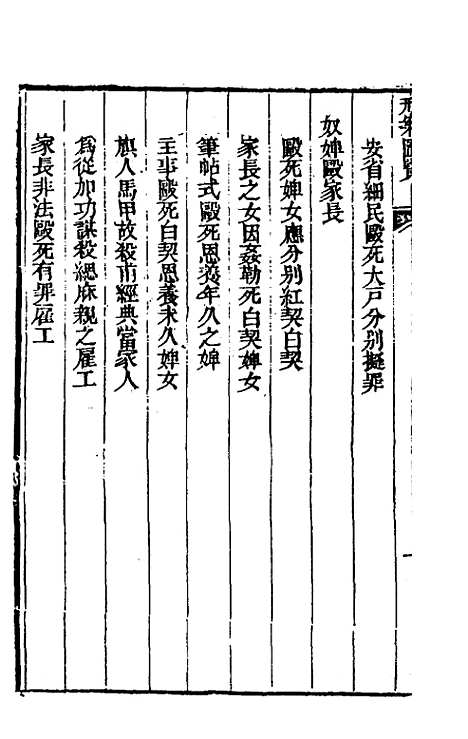 刑案匯覽
安省細民毆死大戶分別擬罪
奴婢毆家長
毆死婢女應分別紅契白契
家長之女因姦勒死白契婢女
筆帖式毆死恩養年久之婢
主事毆死白契恩養未久婢女
旗人馬甲故殺甫經典當家人
為從加功謀殺緦麻親之雇工
家長非法毆死有罪雇工